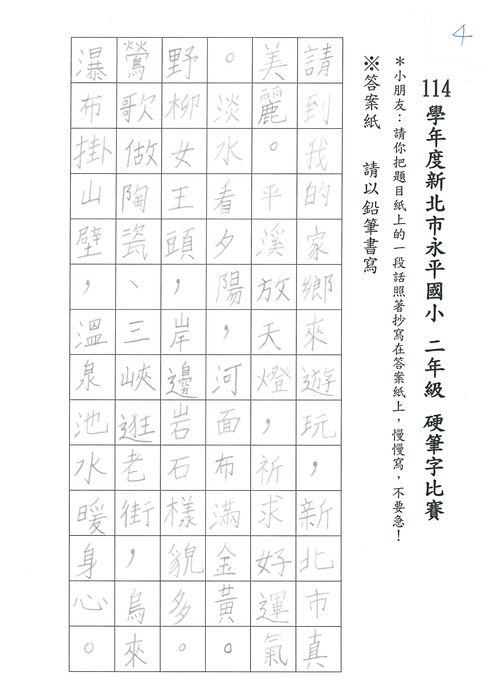 4
114學年度新北市永平國小 二年級 硬筆字比賽
＊小朋友：請你把題目紙上的一段話照著抄寫在答案紙上，慢慢寫，不要急！
※答案紙 請以鉛筆書寫
請到我的家鄉來遊玩，新北市真
美麗。平溪放天燈，祈求好運氣
。淡水看夕陽，河面布滿金黃。
野柳女王頭，岸邊岩石樣貌多。
鶯歌做陶瓷、三峽逛老街，烏來
瀑布掛山壁，溫泉池水暖身心。